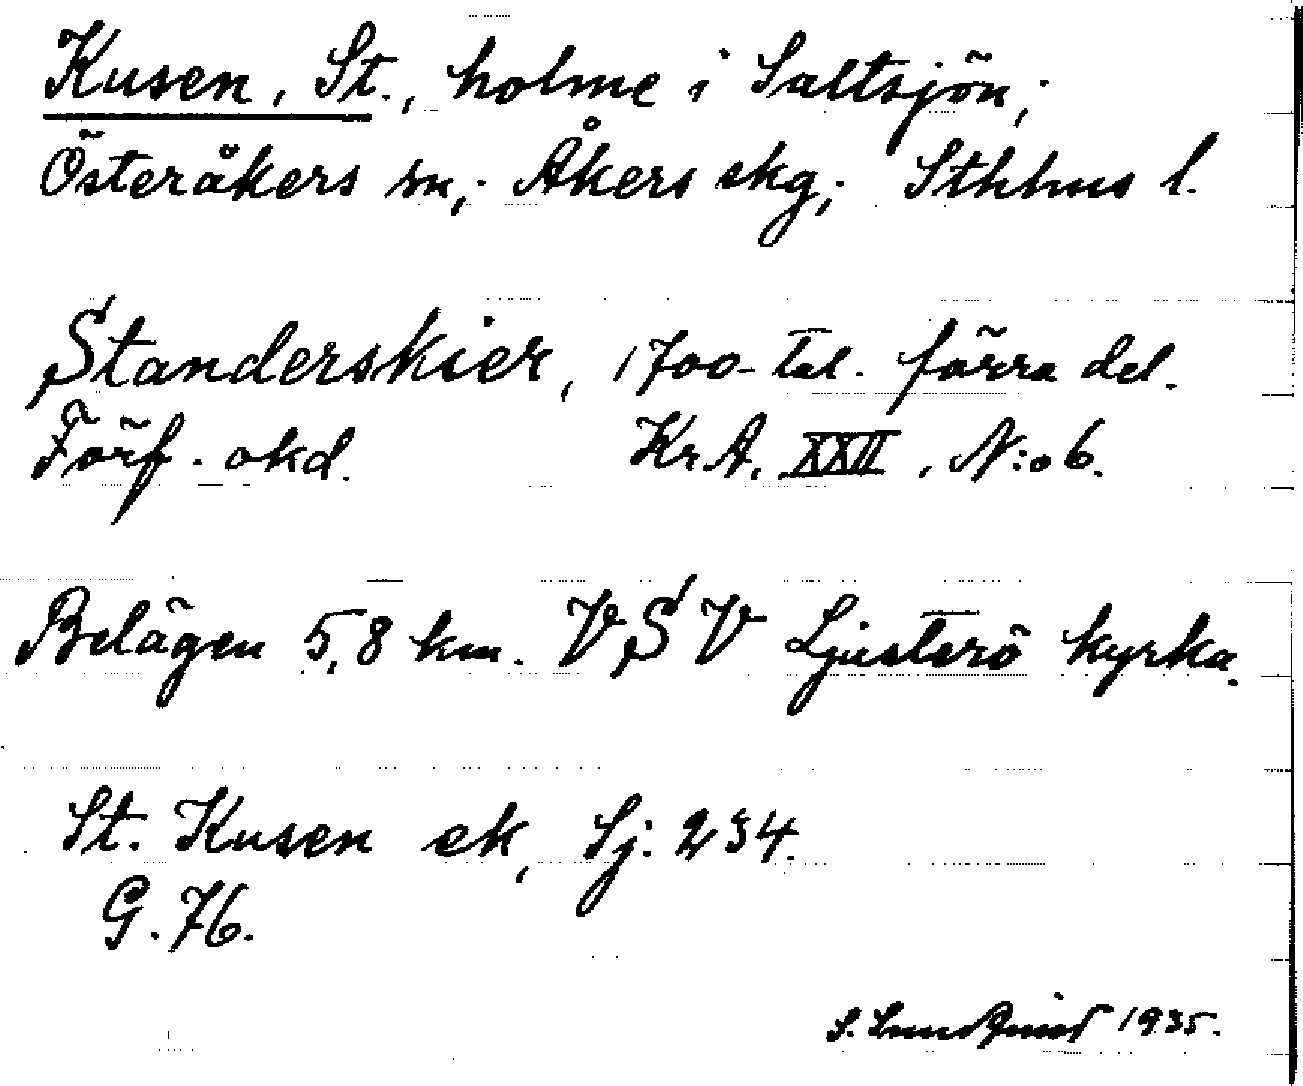 Kusen, St., holme i Saltsjön;
Österåkers sn,; Åkers skg,; Sthhus l.
Standerskier, 1700-tal. förra del.
Förf. okd. Kr.A. XXII, N:o 6.
Belägen 5,8 km. VSV Ljusterö kyrka.
St. Kusen ek, Sj. 234.
G. 76.
S. Lundqvist 1935.